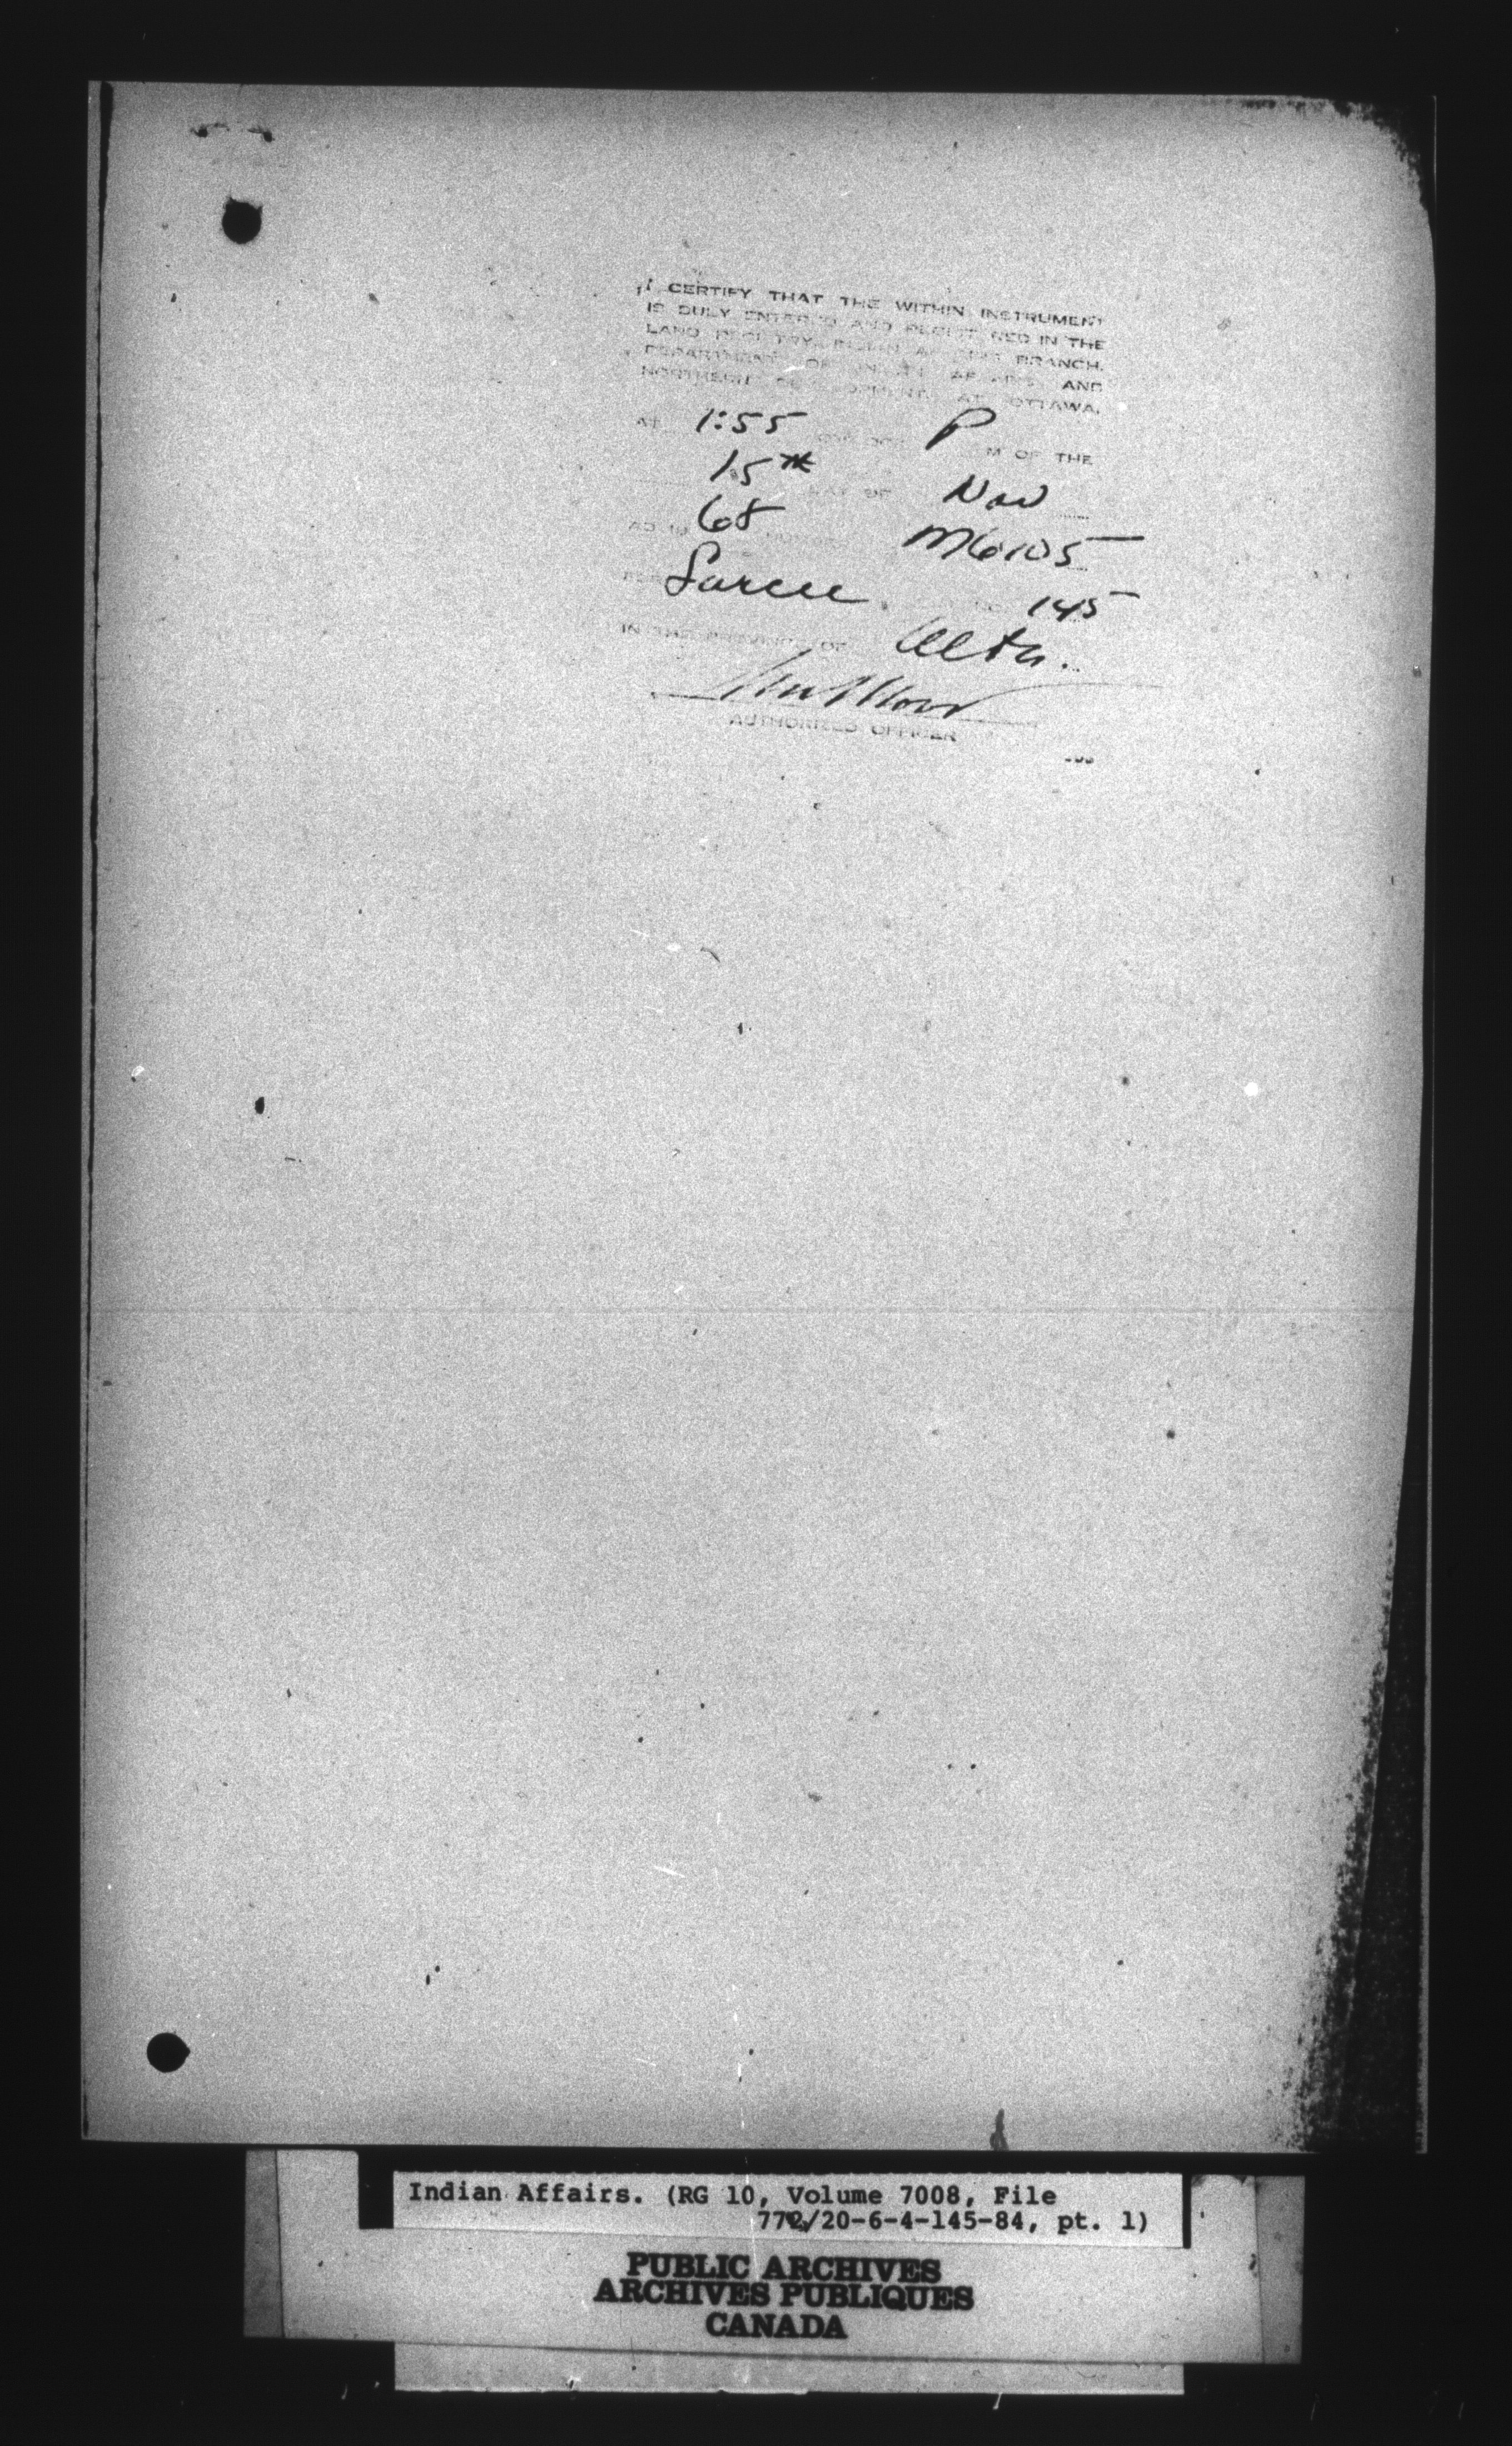 I CERTIFY THAT THE WITHIN INSTRUMENT
IS DULY ENTERED AND REGISTERED IN THE
LAND REGISTRY, INDIAN AFFAIRS BRANCH,
DEPARTMENT OF INDIAN AFFAIRS AND
NORTHERN DEVELOPMENT, AT OTTAWA,
AT 1:55 O'CLOCK P M OF THE
15th DAY OF Nov
AD 19 68 NUMBER M6105
Sarcee 145
IN THE PROVINCE OF Alta.
AUTHORIZED OFFICER
Indian Affairs. (RG 10, Volume 7008, File
772/20-6-4-145-84, pt. 1)
PUBLIC ARCHIVES
ARCHIVES PUBLIQUES
CANADA